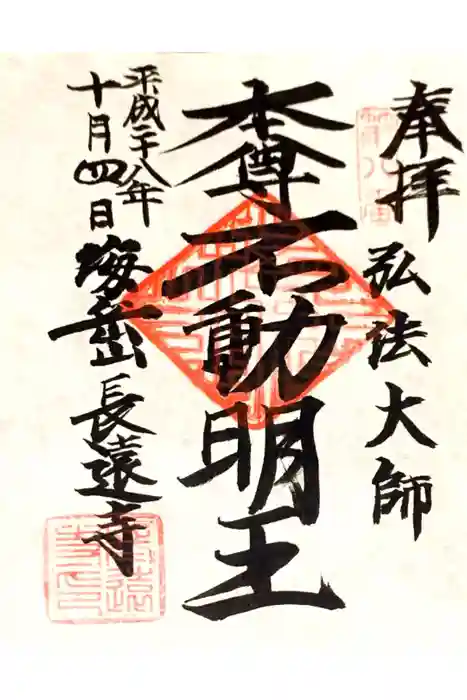 奉拝
弘法大師
本尊不動明王
平成二八年
十月四日
海岳
長遠寺